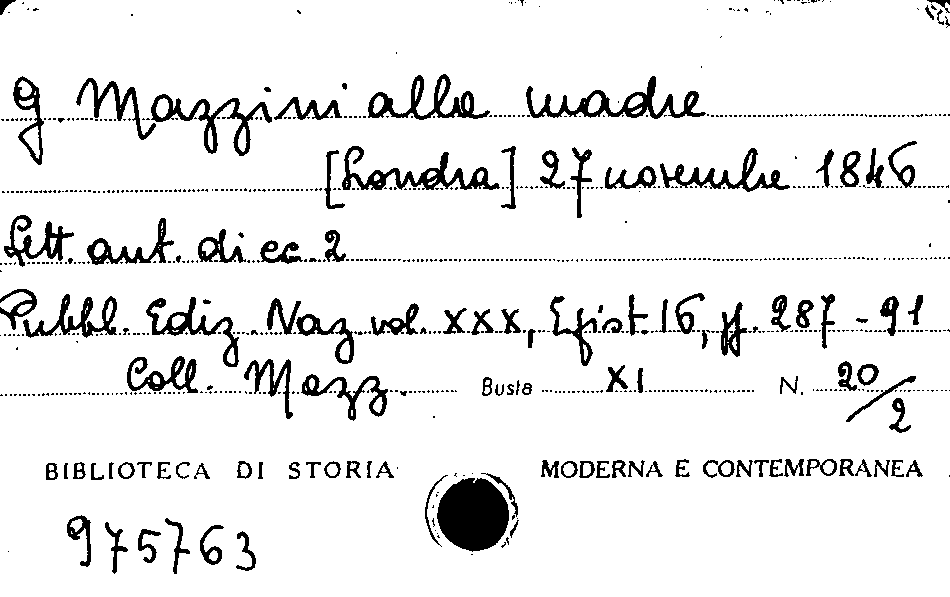 G. Mazzini alla madre
[Londra] 27 novembre 1846
Lett. aut. di cc. 2
Pubbl. Ediz. Naz. vol. XXX, Epist. 16, pp. 287-91
Coll. Mazz. Busta XI N. 20/2
BIBLIOTECA DI STORIA MODERNA E CONTEMPORANEA
975763